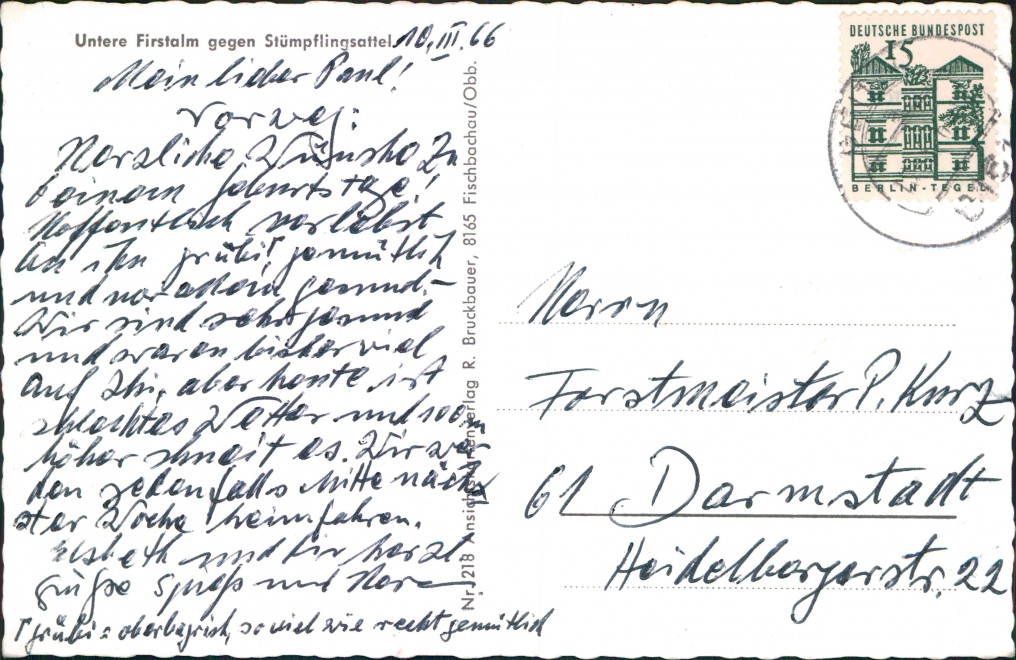 Untere Firstalm gegen Stümpflingsattel
10. III. 66
Mein lieber Paul!
Vorweg:
Herzliche Wünsche zu
Deinem Geburtstage!
Hoffentlich verlebst
Du ihn grübi⸢ gemütlich
und vor allem gesund.-
Wir sind sehr gesund
und waren bisher viel
auf Ski, aber heute ist
schlechtes Wetter und 100 m
höher schneit es. Wir wer
den jedenfalls Mitte näch
ster Woche heimfahren.
Elsbeth und Dir herzl
Grüße und
⸢ grübi = oberbayrisch, so viel wie recht gemütlich
Nr. 1218 Ansichtskartenverlag R. Bruckbauer, 8165 Fischbachau/Obb.
DEUTSCHE BUNDESPOST
15
BERLIN-TEGEL
Herrn
Forstmeister P. Kurz
61 Darmstadt
Heidelbergerstr. 22